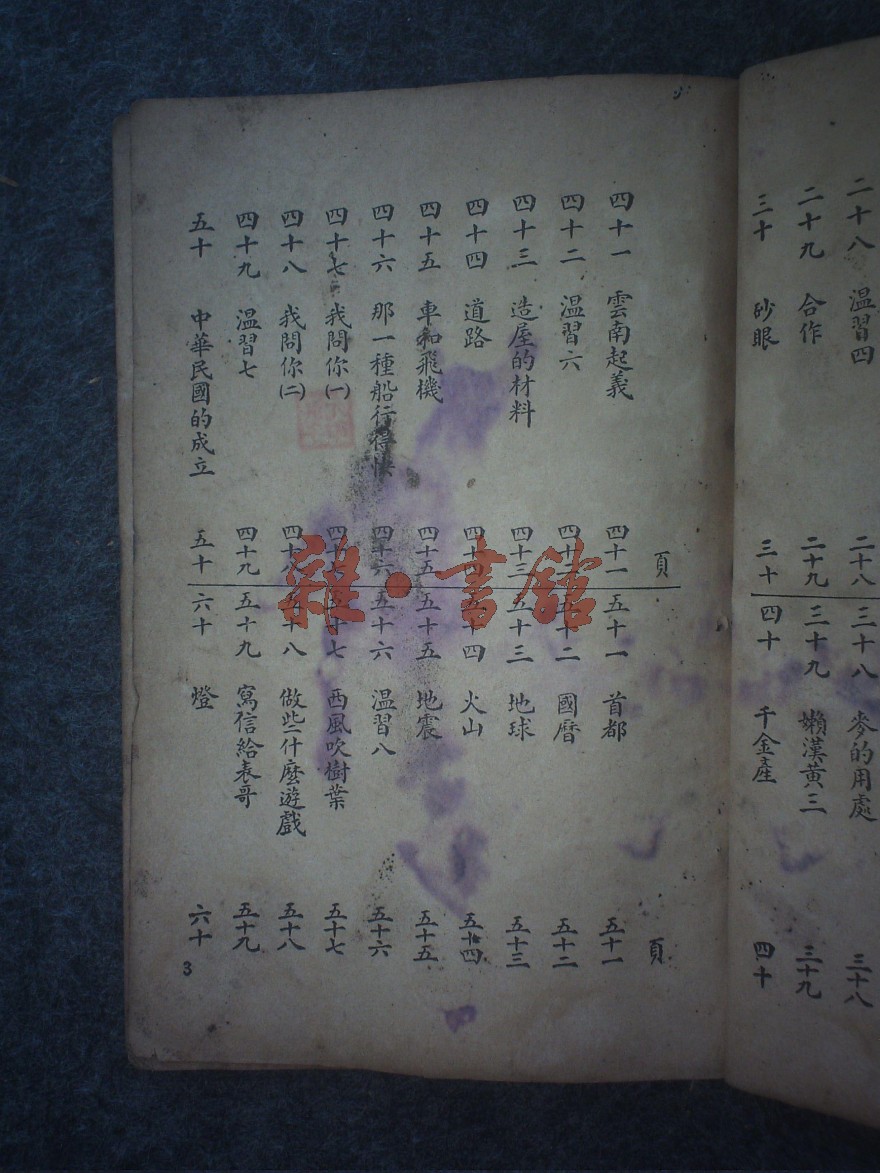 二十八 温習四 二十八
二十九 合作 二十九
三十 砂眼 三十
三十八 麥的用處 三十八
三十九 懶漢黃三 三十九
四十 千金產 四十
頁
四十一 雲南起義 四十一
四十二 温習六 四十二
四十三 造屋的材料 四十三
四十四 道路 四十四
四十五 車和飛機 四十五
四十六 那一種船行得快 四十六
四十七 我問你(一) 四十七
四十八 我問你(二) 四十八
四十九 温習七 四十九
五十 中華民國的成立 五十
頁
五十一 首都 五十一
五十二 國曆 五十二
五十三 地球 五十三
五十四 火山 五十四
五十五 地震 五十五
五十六 温習八 五十六
五十七 西風吹樹葉 五十七
五十八 做些什麼遊戲 五十八
五十九 寫信給表哥 五十九
六十 燈 六十
3
雜·書館